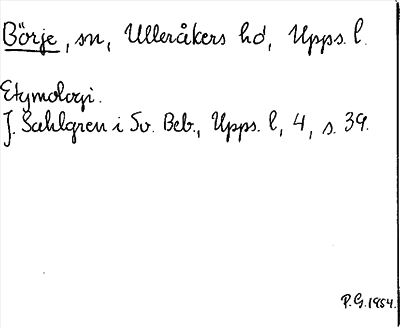 Börje, sn, Ulleråkers hd, Upps. l.
Etymologi.
J. Sahlgren i Sv. Beb., Upps. l, 4, s. 39.
P.G. 1954.